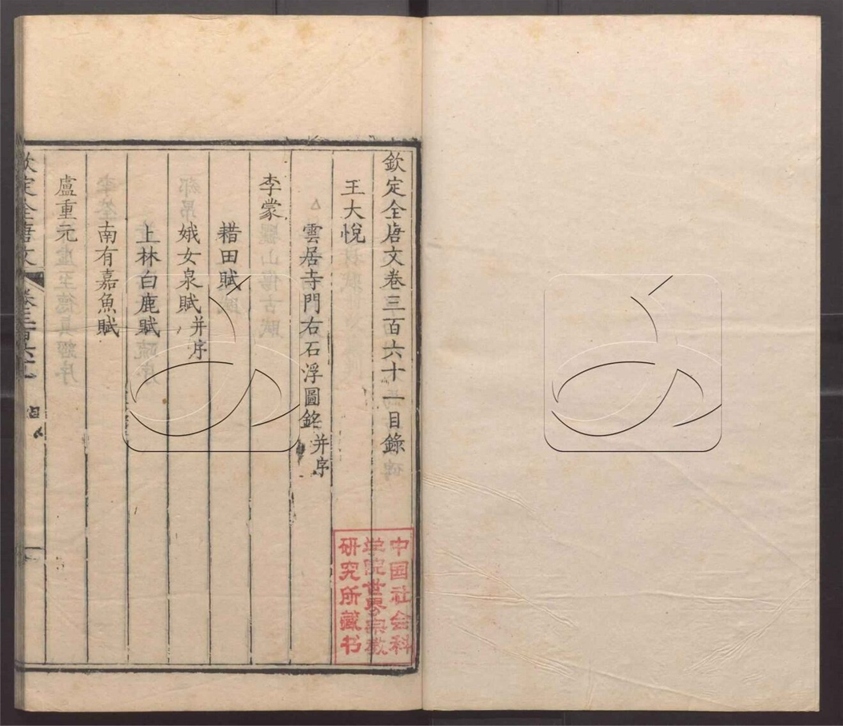 欽定全唐文卷三百六十一目錄
王大悅
雲居寺門右石浮圖銘并序
李蒙
耤田賦
娥女泉賦并序
上林白鹿賦
南有嘉魚賦
盧重元
欽定全唐文
中国社会科
学院世界宗教
研究所藏书